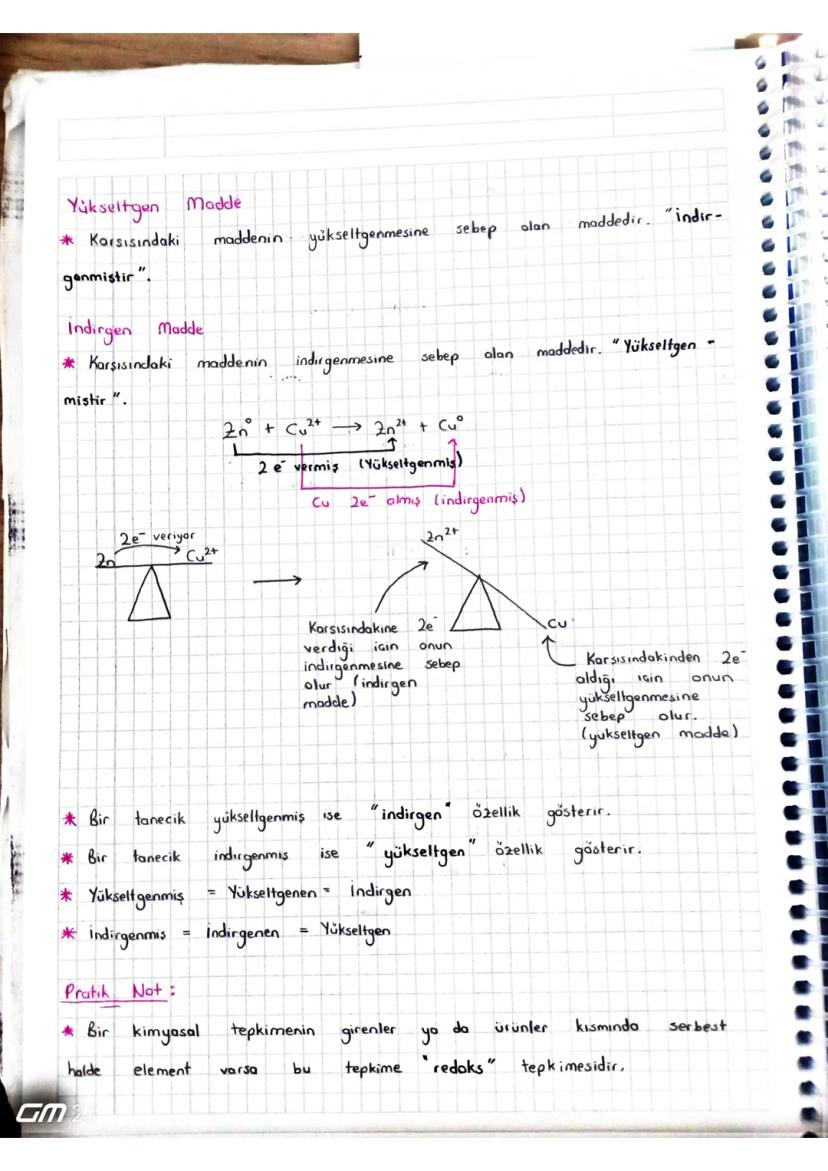 Yükseltgen Madde
* Karsısındaki maddenin yükseltgenmesine sebep olan maddedir. "indir-
genmiştir".
İndirgen Madde
* Karşısındaki maddenin indirgenmesine sebep olan maddedir. "Yükseltgen -
miştir".
Zn⁰ + Cu²⁺ → Zn²⁺ + Cu⁰
2 e⁻ vermiş (Yükseltgenmiş)
Cu 2e⁻ almış (indirgenmiş)
2e⁻ veriyor
Zn Cu²⁺
→
Zn²⁺
Cu
Karsısındakine 2e⁻
verdiği için onun
indirgenmesine sebep
olur (indirgen
madde)
Karsısındakinden 2e⁻
aldığı için onun
yükseltgenmesine
sebep olur.
(yükseltgen madde)
* Bir tanecik yükseltgenmiş ise "indirgen" özellik gösterir.
* Bir tanecik indirgenmiş ise "yükseltgen" özellik gösterir.
* Yükseltgenmiş = Yükseltgenen = İndirgen
* İndirgenmiş = İndirgenen = Yükseltgen
Pratik Not:
* Bir kimyasal tepkimenin girenler ya da ürünler kısmında serbest
halde element varsa bu tepkime "redoks" tepkimesidir.
GM 2